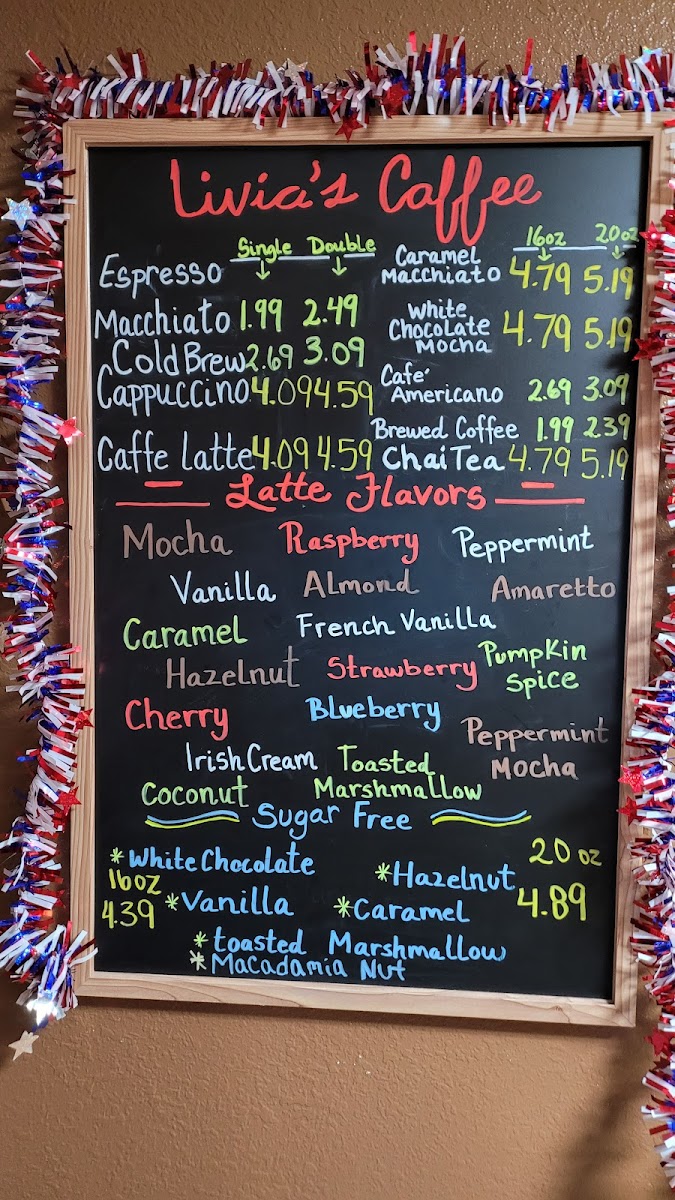 Livia's Caffee
Single Double
Espresso
Macchiato 1.99 2.49
Cold Brew 2.69 3.09
Cappuccino 4.09 4.59
Caffe latte 4.09 4.59
16oz 20oz
Caramel
Macchiato 4.79 5.19
White
Chocolate 4.79 5.19
Mocha
Cafe'
Americano 2.69 3.09
Brewed Coffee 1.99 2.39
Chai Tea 4.79 5.19
Latte Flavors
Mocha Raspberry Peppermint
Vanilla Almond Amaretto
Caramel French Vanilla
Hazelnut Strawberry Pumpkin
Spice
Cherry Blueberry Peppermint
Mocha
Irish Cream Toasted
Marshmallow
Coconut
Sugar Free
*White Chocolate *Hazelnut
*Vanilla *Caramel
16oz
4.39
20 oz
4.89
*toasted Marshmallow
*Macadamia Nut